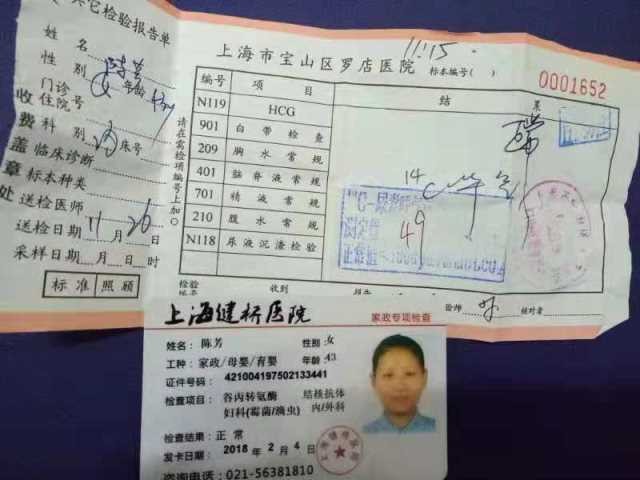 其它检验报告单
上海市宝山区罗店医院
标本编号( )
11:15
0001652
姓名
陈芳
性别
女
年龄
门诊
住院号
科别
床号
临床诊断
标本种类
送检医师
送检日期 11月26日
采样日期 月 日 时
标准 照顾
收费盖章处
请在需检项编号上加○
编号 项目 结果
N119 HCG
901 白带检查
209 胸水常规
401 脑脊液常规
701 精液常规
210 腹水常规
N118 尿液沉渣检验
14
C-尿素呼气
测定值 49
正常值
检验
收到
验师
核对者
上海健桥医院
家政专项检查
姓名：陈芳 性别：女
工种：家政/母婴/育婴 年龄：43
证件号码：421004197502133441
检查项目：谷丙转氨酶 结核抗体
妇科(霉菌/滴虫) 内/外科
检查结果：正常
发卡日期：2018年2月4日
咨询电话：021-56381810